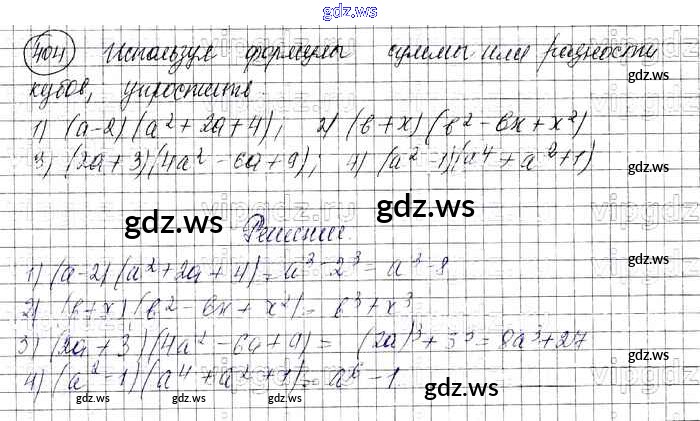 gdz.ws
404 Используя формулы суммы или разности
gdz.ws
кубов, упростить.
1) (a-2)(a²+2a+4); 2) (b+x)(b²-bx+x²)
3) (2a+3)(4a²-6a+9); 4) (a²-1)(a⁴+a²+1)
gdz.ws gdz.ws
Решение.
1) (a-2)(a²+2a+4)=a³-2³=a³-8
gdz.ws
2) (b+x)(b²-bx+x²)=b³+x³
3) (2a+3)(4a²-6a+9)=(2a)³+3³=8a³+27
4) (a²-1)(a⁴+a²+1)=a⁶-1
gdz.ws gdz.ws gdz.ws